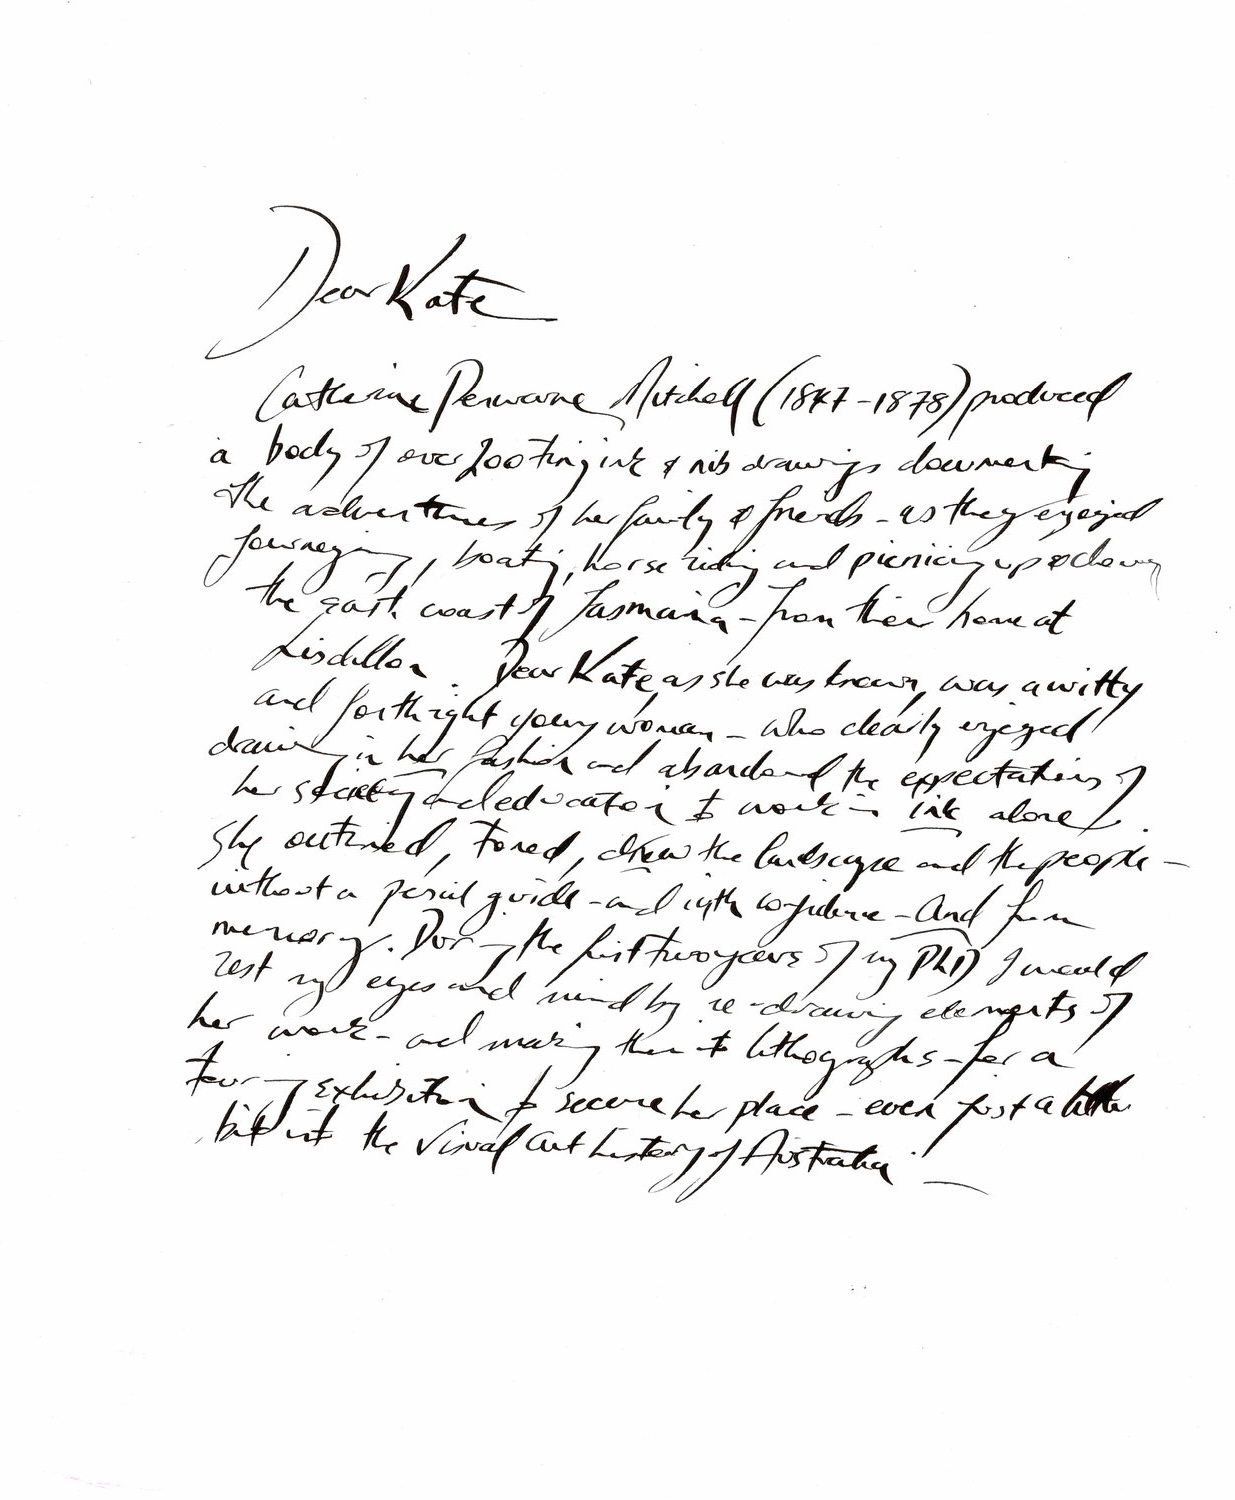 Dear Kate
Catherine Penwarne Mitchell (1847-1878) produced
a body of over 200 tiny ink & nib drawings documenting
the adventures of her family & friends - as they enjoyed
journeying, boating, horse riding and picnicing up & down
the east coast of Tasmania - from their home at
Lisdillon. Dear Kate, as she was known, was a witty
and forthright young woman - who clearly enjoyed
drawing in her fashion and abandoned the expectations of
her society and education to work in ink alone.
She outlined, toned, drew the landscape and the people -
without a pencil guide - and with confidence - And from
memory. During the first two years of my PhD I would
rest my eyes and mind by re-drawing elements of
her work - and making them into lithographs - for a
touring exhibition to secure her place - even just a little
bit into the visual art history of Australia -